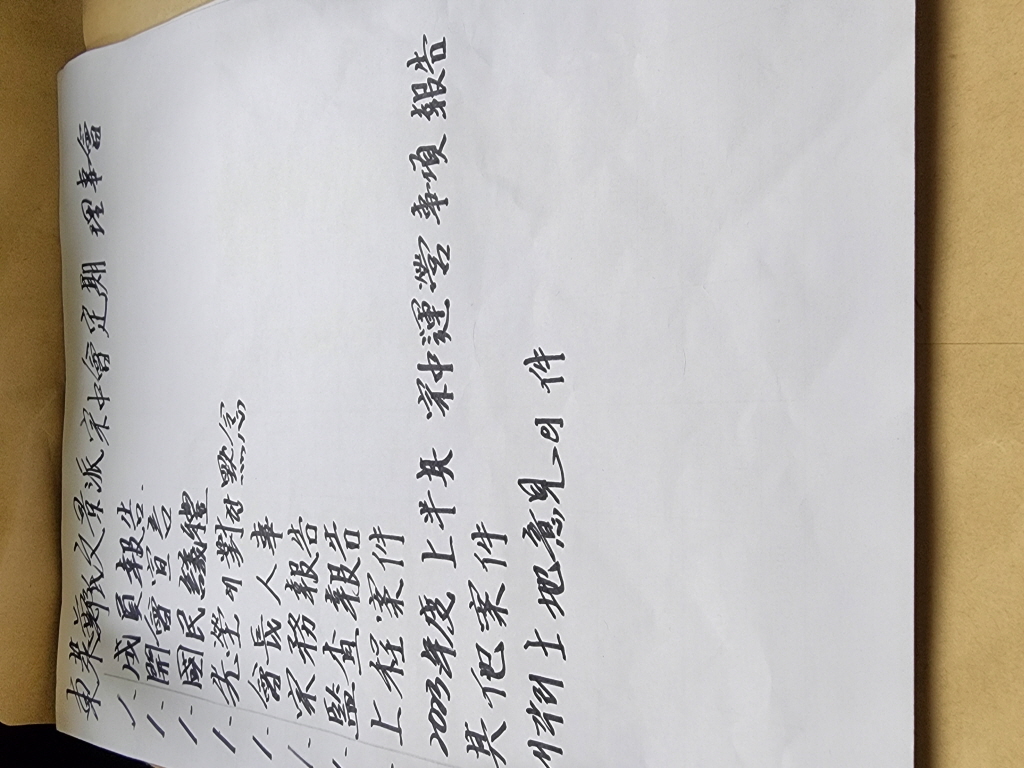 東萊鄭文景派宗中會定期 理事會
1. 成員報告.
1. 開會宣言
1. 國民議禮
1. 先塋에 對한 默念
1. 會長人事
1. 宗務報告
1. 監査報告
上程案件
2023年度 上半其 宗中運營事項 報告
其他案件
土地意見의 件